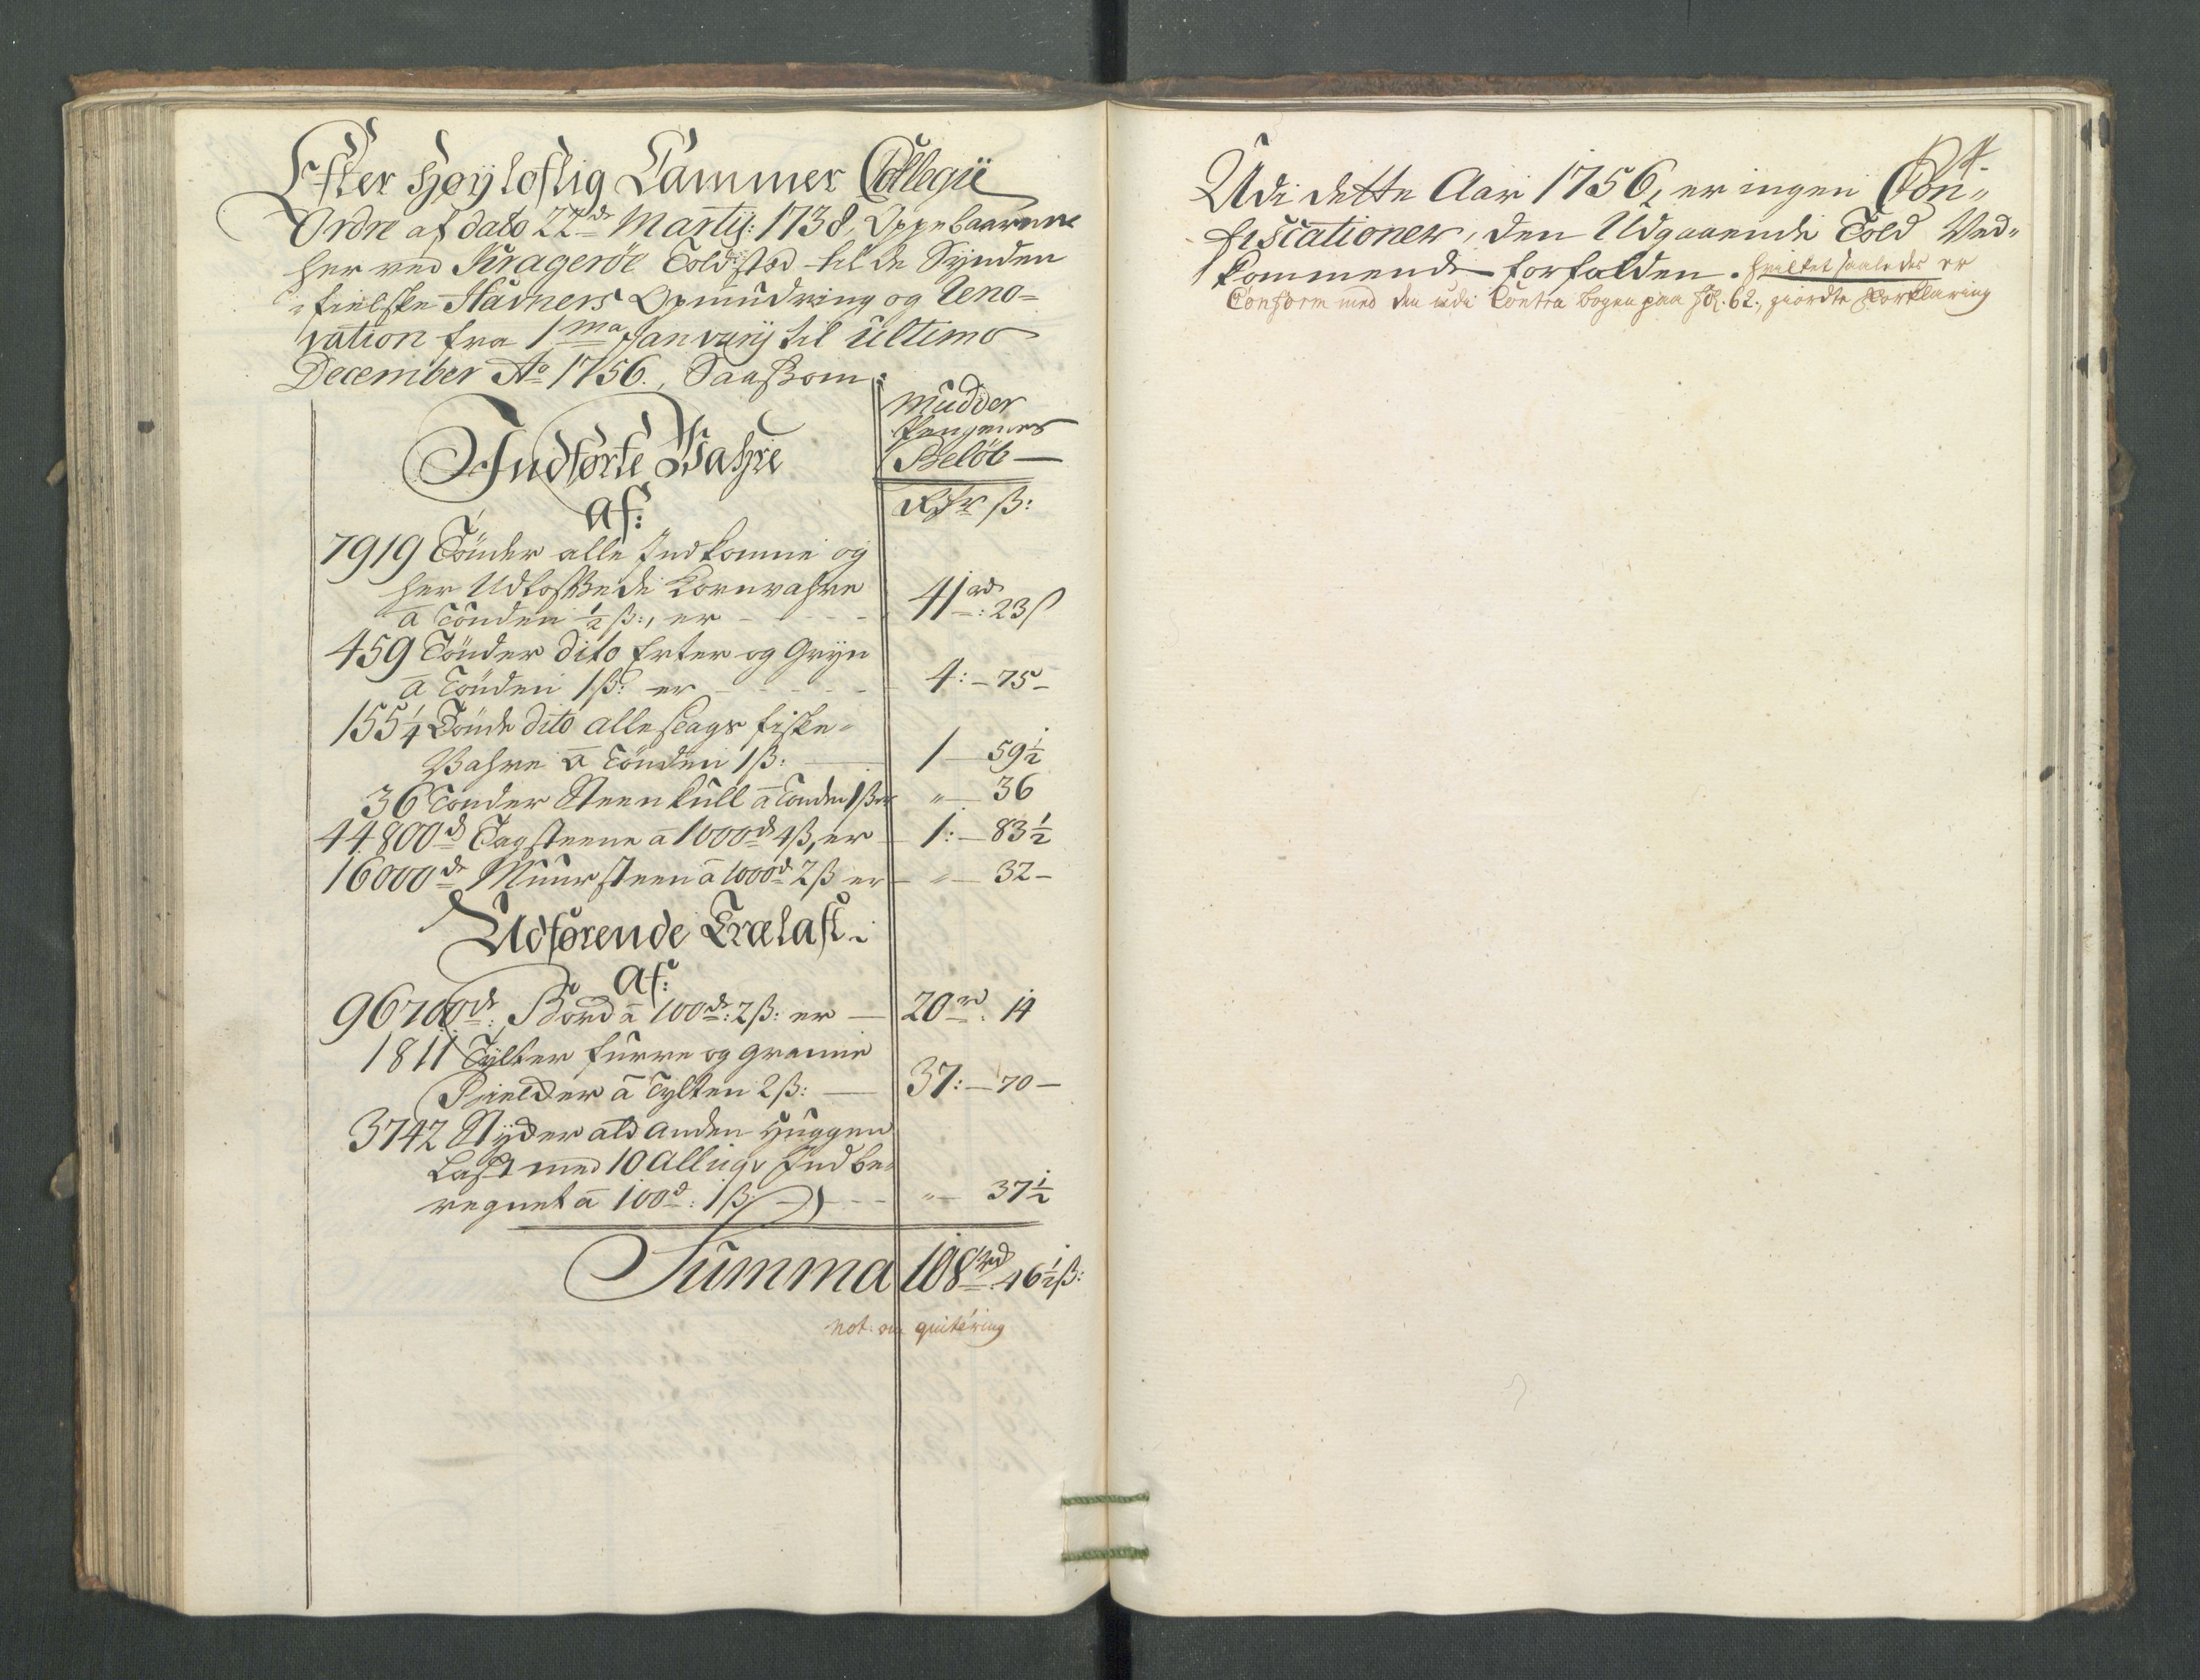 Efter Høyloflig Cammer Collegii
Ordre af dato 22de Martij: 1738, Oppebaarne
her ved Kragerøe Toldsted til de Synden
fielske Havners Opmudring og Reno-
vation fra 1ma Januarij til ultimo
December Ao 1756., Saasom:
Mudder
Pengenes
Beløb —
Indførte Wahre
af:
Rdr ß:
7919 Tønder alle Indkomne og
her Udlossede Kornvahre
a Tønden ½ ß:, er - - - - 41rd: 23ß
459 Tønder dito Erter og Gryn
a Tønden 1ß: er - - - - - 4: – 75 –
155¼ Tønde dito alle slags fiske-
Vahre a Tønden 1ß: — 1 — 59½
36 Tønder Steenkull a Tønden 1ß er " — 36
44800de Tagsteene a 1000de 4ß, er – 1: – 83½
16000de Muursteen a 1000de 2ß er – " — 32 –
Udførende Trælast.
af:
96700de: Bord a 100de: 2ß: er — 20rd. 14
1811 Tylter furre og granne
Dielder a Tylten 2ß: — 37: – 70 –
3742 Styder ald anden Huggen
Last med 10 Allings Indbe-
regnet a 100de: 1ß: - - - " — 37½
Summa 108rd 46½ß:
not: om quitéring
Udi dette Aar 1756, er ingen Con-
fiscationer, den Udgaaende Told Ved-
kommende forfalden. hvilket saaledes er
Conform med den udi Contra bogen paa fol. 62, giordte forklaring